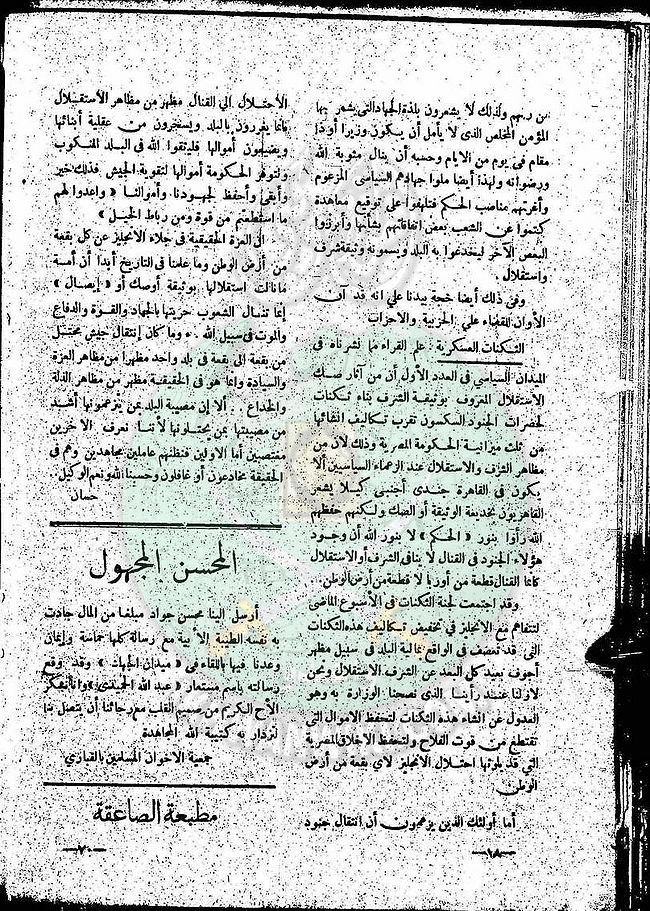 من ربهم ولذلك لا يشعرون بلذة الجهاد التي يشعر بها
المؤمن المخلص الذى لا يأمل أن يكون وزيرا أو ذا
مقام فى يوم من الايام وحسبه أن ينال مثوبة الله
ورضوانه ولهذا أيضا ملوا جهادهم السياسى المزعوم
وأغرتهم مناصب الحكم فتلهفوا على توقيع معاهدة
كتموا عن الشعب بعض اتفاقاتهم بشأنها وأبرزوا
البعض الآخر ليخدعوا به البلد ويسمونه وثيقة شرف
واستقلال .
وفى ذلك أيضا حجة بيدنا على انه قد آن
الأوان للقضاء على الحزبية والاحزاب
الثكنات العسكرية : علم القراء مما نشرناه فى
الميدان السياسي فى العدد الأول أن من آثار صك
الاستقلال المعروف بوثيقة الشرف بناء ثكنات
لحضرات الجنود السكسون تقرب تكاليف انشائها
من ثلث ميزانية الحكومة المصرية وذلك لأن من
مظاهر الشرف والاستقلال عند الزعماء السياسين ألا
يكون فى القاهرة جندى أجنبى كيلا يشعر
القاهريون بخديعة الوثيقة أو الصك ولكنهم حفظهم
الله رأوا بنور « الحكم » لا بنور الله أن وجود
هؤلاء الجنود فى القنال لا ينافى الشرف أو الاستقلال
كأنما القنال قطعة من أوربا لا قطعة من أرض الوطن .
وقد اجتمعت لجنة الثكنات فى الأسبوع الماضى
لتتفاهم مع الانجليز فى تخفيض تكاليف هذه الثكنات
التى قد تعصف فى الواقع بمالية البلد فى سبيل مظهر
أجوف بعيد كل البعد عن الشرف الاستقلال ونحن
لا زلنا عند رأينا الذى نصحنا الوزارة به وهو
العدول عن انشاء هذه الثكنات لتحفظ الاموال التى
تقتطع من قوت الفلاح ولتحفظ الاخلاق المصرية
التى قد يلوثها احتلال الانجليز لاى بقعة من أرض
الوطن
أما أولئك الذين يزعمون أن انتقال جنود
— ١٨ —
الأحتلال الى القنال مظهر من مظاهر الأستقلال
فانما يغررون بالبلد ويسخرون من عقلية أبنائها
ويضيعون أموالها فليتقوا الله فى البلد المنكوب
ولتوفر الحكومة أموالها لتقوية الجيش فذلك خير
وأبقى وأحفظ لجهودنا وأموالنا « واعدوا لهم
ما استطعتم من قوة ومن رباط الخيل »
ان العزة الحقيقية فى جلاء الانجليز عن كل بقعة
من أرض الوطن وما علمنا فى التاريخ أبدا أن أمة
ما نالت استقلالها بوثيقة أوصك أو « إيصال »
إنما تنال الشعوب حريتها بالجهاد والقوة والدفاع
والموت فى سبيل الله . وما كان إنتقال جيش محتل
من بقعة الى بقعة فى بلد واحد مظهرا من مظاهر العزة
والسيادة وانما هو فى الحقيقة مظهر من مظاهر الذلة
والخداع . . ألا إن مصيبة البلد بمن يتزعمونها أشد
من مصيبتها بمن يحتلونها لأننا نعرف الآخرين
مغتصبين أما الاولين فنظنهم عاملين مجاهدين وهم فى
الحقيقة مخادعون أو غافلون وحسبنا الله ونعم الوكيل .
حسان
المحسن المجهول
أرسل الينا محسن جواد مبلغا من المال جادت
به نفسه الطيبة الأبية مع رسالة كلها حماسة وإيمان
وعدنا فيها باللقاء فى « ميدان الجهاد » وقد وقع
رسالته باسم مستعار « عبد الله الجيادى » وانا نشكر
الأخ الكريم من صميم القلب مع رجائنا أن يتصل بنا
لتزدان به كتيبة الله المجاهدة
جمعية الاخوان المسلمين بالقبارى
مطبعة الصاعقة
— ٧٠ —